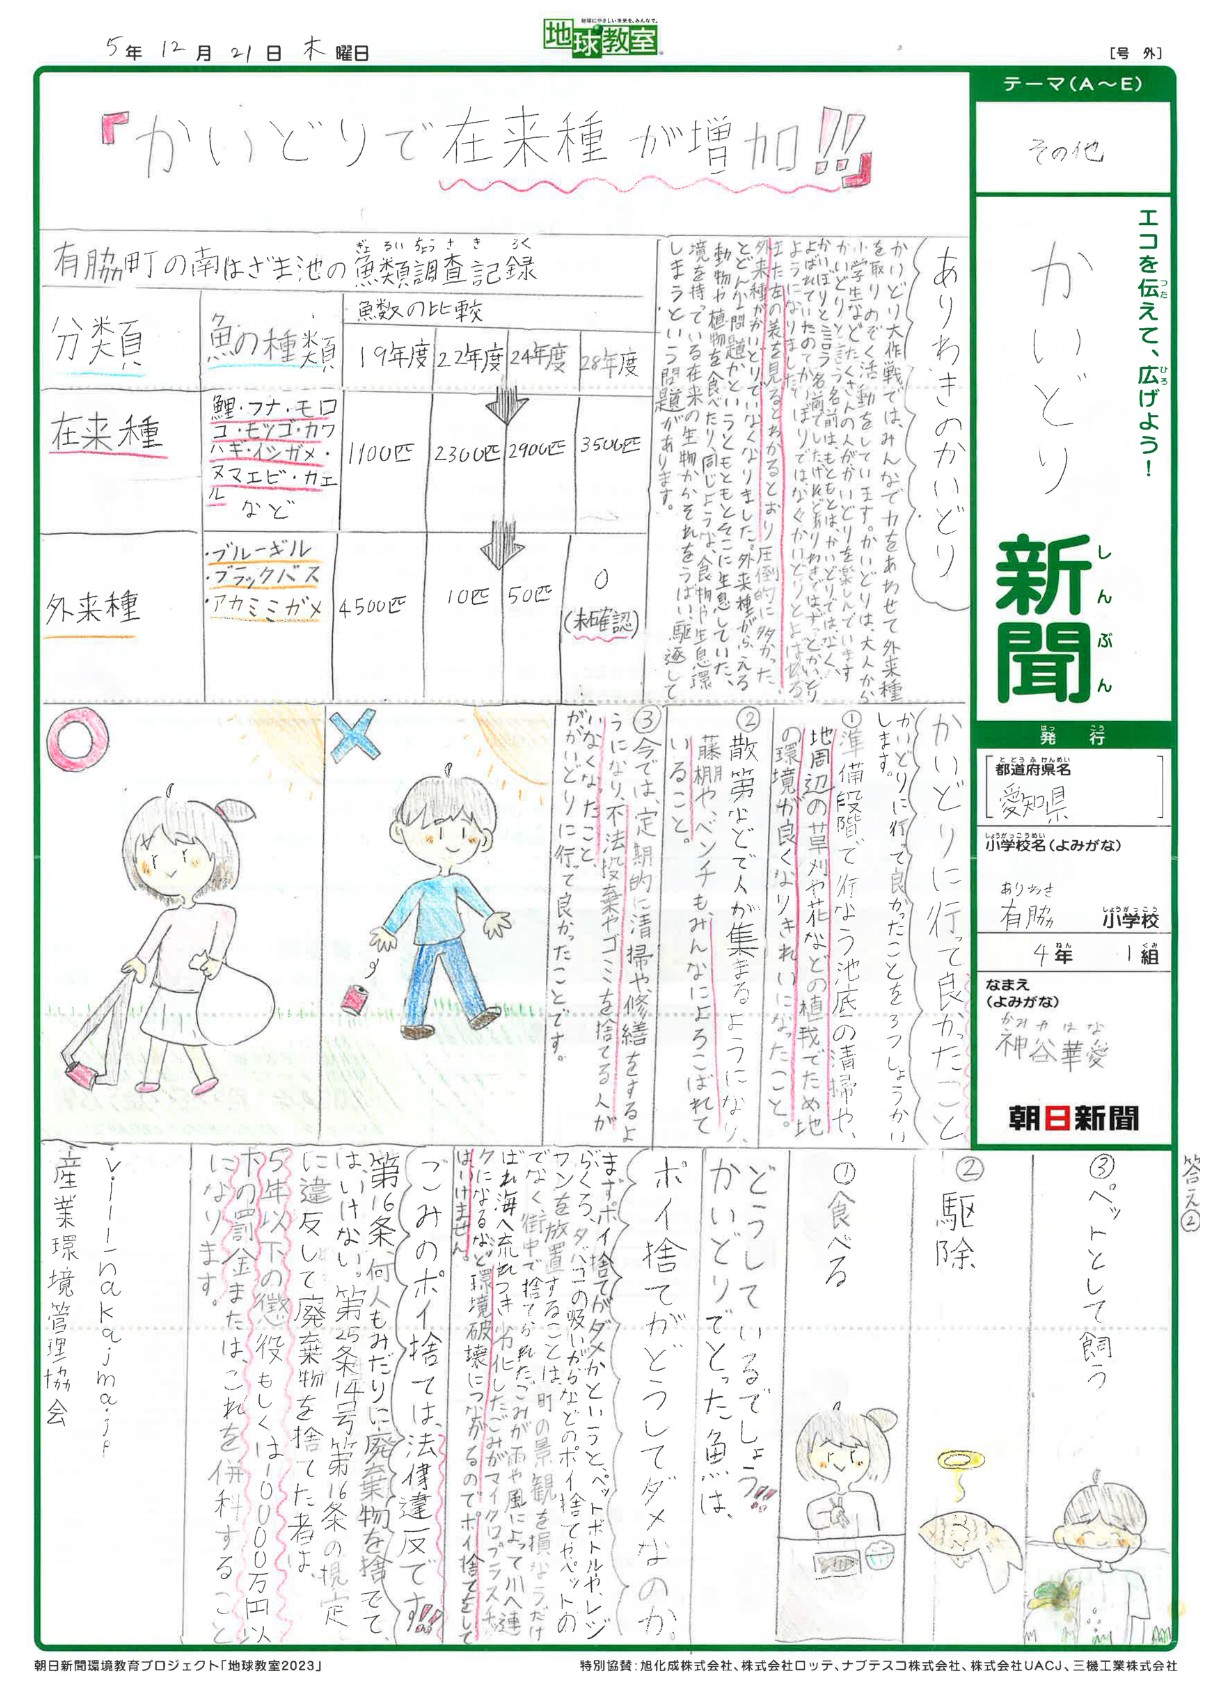 5年 12月 21日 木曜日
地球にやさしい未来を、みんなで。
地球教室
[号 外]
テーマ(A〜E)
その他
エコを伝えて、広げよう!
つた
ひろ
かいどり
新聞
しんぶん
発行
はっこう
都道府県名
とどうふけんめい
愛知県
小学校名(よみがな)
しょうがっこうめい
ありわき
有脇 小学校
しょうがっこう
4年 1組
ねん
くみ
なまえ
(よみがな)
かみや はな
神谷華愛
朝日新聞
『かいどりで在来種が増加!!』
有脇町の南はざま池の魚類調査記録
ぎょるいちょうさきろく
分類
魚の種類
魚数の比較
19年度 22年度 24年度 28年度
在来種
鯉・フナ・モロ
コ・モツゴ・カワ
ハギ・イシガメ・
ヌマエビ・カエ
ル
など
1100匹 2300匹 2900匹 3500匹
外来種
・ブルーギル
・ブラックバス
・アカミミガメ
4500匹 10匹 50匹 0
(未確認)
ありわきのかいどり
かいどり大作戦では、みんなで力をあわせて外来種
を取りのぞく活動をしています。かいどりは大人から
小学生などたくさんの人がかいどりを楽しんでいます
かいどりと言う名前はもともとは、かいどりではなく、
かいぼりと言う名前でしたけれどありわきではずっとかいどり
とよばれていたのでかいぼりではなくかいどりとよばれる
ようになりました。
また左の表を見るとわかるとおり圧倒的に多かった
外来種がかいどりでいなくなりました。外来種がふえる
とどんな問題かというともともとそこに生息していた、
動物や植物を食べたり、同じような、食物や生息環
境を持っている在来の生物からそれをうばい、駆逐して
しまうという問題があります。
かいどりに行って良かったこと
かいどりに行って良かったことを3つしょうかい
します。
①準備段階で行なう池底の清掃や、
地周辺の草刈や花などの植栽でため池
の環境が良くなりきれいになったこと。
②散策などで人が集まるようになり、
藤棚や、ベンチも、みんなによろこばれて
いること。
③今では、定期的に清掃や、修繕をするよ
うになり、不法投棄やゴミを捨てる人が
いなくなったこと、
がかいどりに行って良かったことです。
③ペットとして飼う
②駆除
①食べる
どうしているでしょう!!
かいどりでとった魚は、
答え②
ポイ捨てがどうしてダメなのか。
まず。ポイ捨てがダメかというと、ペットボトルや、レジ
ぶくろ、タバコの吸いがらなどのポイ捨てやペットの
フンを放置することは、町の景観を損なうだけ
でなく、街中で捨てられたごみが雨や風によって川へ運
ばれ海へ流れつき劣化したごみがマイクロプラスチッ
クになるなど環境破壊につながるのでポイ捨てをして
はいけません。
ごみのポイ捨ては、法律違反です!!
第16条、何人もみだりに廃棄物を捨てて、
はいけない。第25条14号第16条の規定
に違反して廃棄物を捨てた者は、
5年以下の懲役もしくは1000万円以
下の罰金または、これを併科すること
になります。
vill-nakajma.jp
産業環境管理協会
朝日新聞環境教育プロジェクト「地球教室2023」
特別協賛:旭化成株式会社、株式会社ロッテ、ナブテスコ株式会社、株式会社UACJ、三機工業株式会社